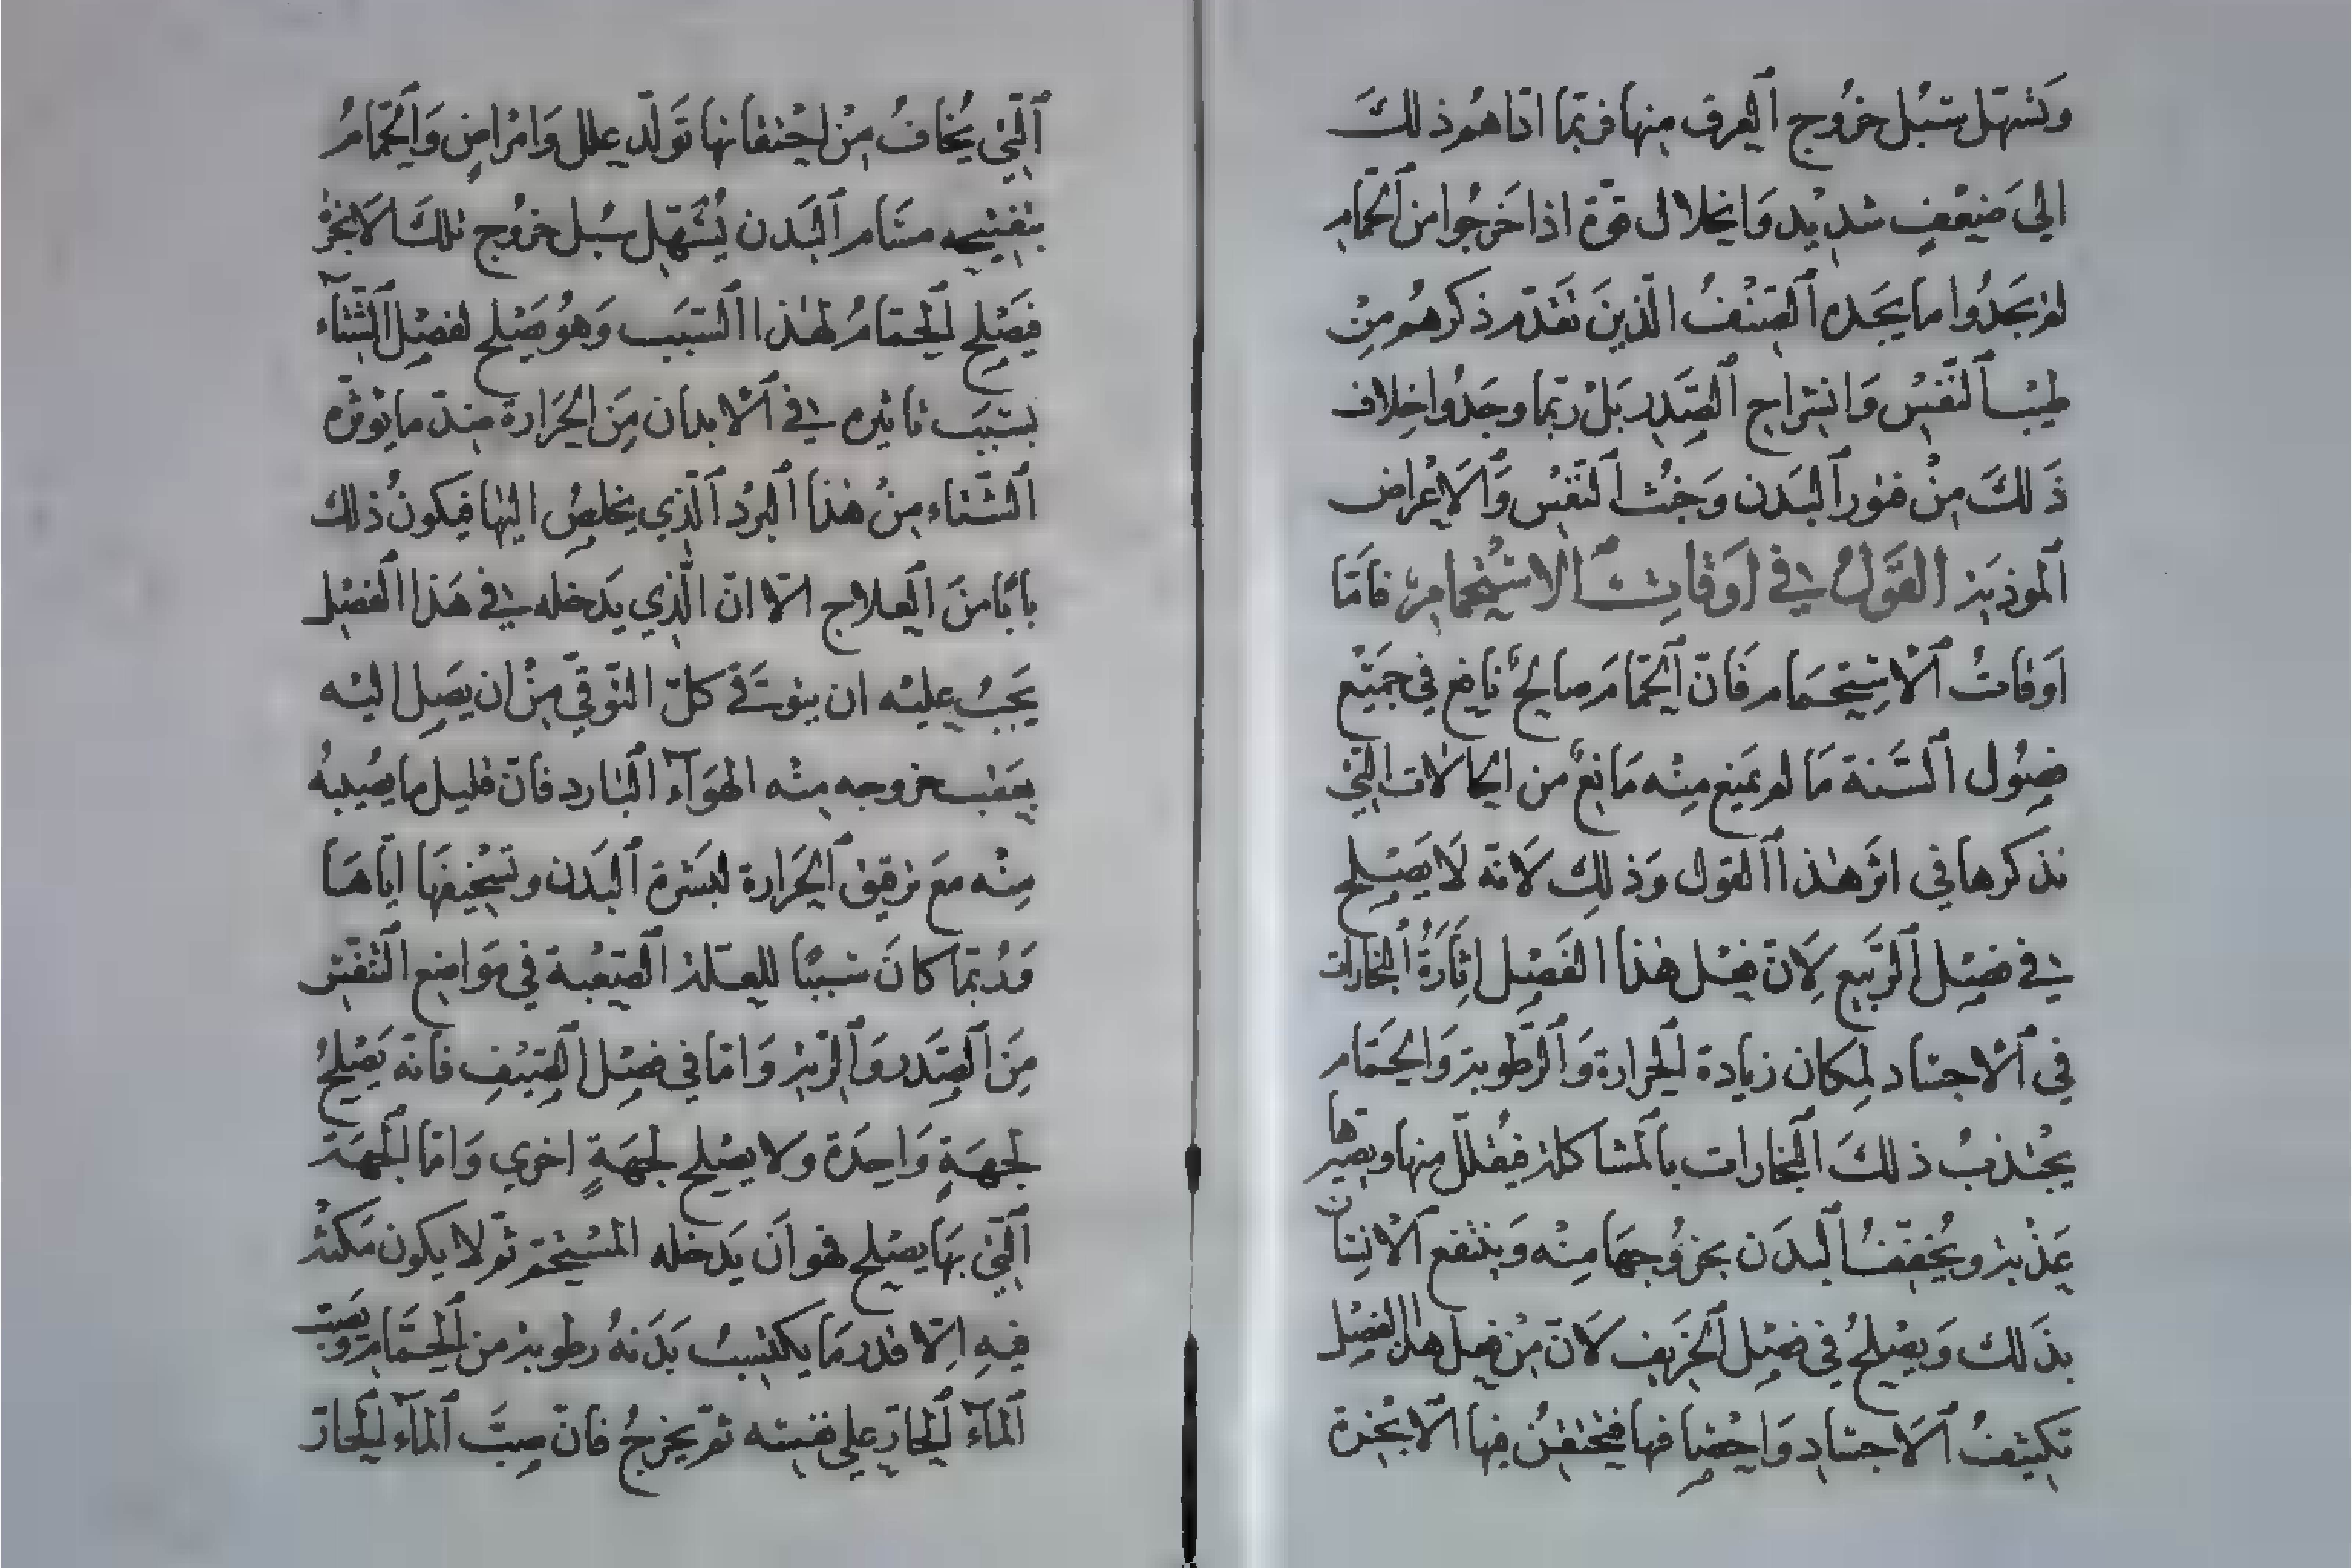 وتسهل سبل خروج العرق منها فربما اداهم ذلك
الى ضعف شديد وانحلال قوة اذا خرجوا من الحمام
لم يجدوا ما يجده الصنف الذين تقدم ذكرهم من
طيب النفس وانشراج الصدر بل ربما وجدوا خلاف
ذلك من فتور البدن وخبث النفس والاعراض
الموذية القول في اوقات الاستحمام فاما
اوقات الاستحمام فان الحمام صالح نافع في جميع
فصول السنة ما لم يمنع منه مانع من الحالات التي
نذكرها في اثر هذا القول وذلك لانه لا يصلح
في فصل الربيع لان فعل هذا الفصل اثارة البخارات
في الاجساد لمكان زيادة الحرارة والرطوبة والحمام
يجتذب ذلك البخارات بالمشاكلة فيقلل منها ويصيرها
عذبة ويخفف البدن بخروجها منه وينتفع الانسان
بذلك ويصلح في فصل الخريف لان من فعل هذا الفصل
تكثيف الاجساد واحصافها فيحتقن فيها الابخرة
التي يخاف من احتقانها تولد علل وامراض والحمام
بتفتيحه مسام البدن يسهل سبل خروج تلك الابخرة
فيصلح الحمام لهذا السبب وهو يصلح لفصل الشتاء
بسبب تاثيره في الابدان من الحرارة ضد ما يوثره
الشتاء من هذا البرد الذي يخلص اليها فيكون ذلك
بابا من العلاج الا ان الذي يدخله في هذا الفصل
يجب عليه ان يتوقى كل التوقي من ان يصل اليه
بعقب خروجه منه الهواء البارد فان قليل ما يصيبه
منه مع ترقيق الحرارة لبشرة البدن وتسخيفها اياها
وربما كان سببا للعلة الصعبة في مواضع التنفس
من الصدر والرية واما في فصل الصيف فانه يصلح
لجهة واحدة ولا يصلح لجهة اخرى واما الجهة
التي بها يصلح فهو ان يدخله المستحم ثم لا يكون مكثه
فيه الا قدر ما يكتسب بدنه رطوبة من الحمام ويصب
الماء الحار على نفسه ثم يخرج فان صب الماء الحار